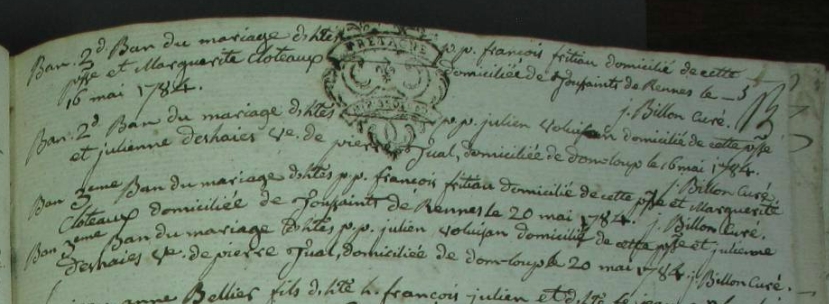 Ban. 2d. Ban du mariage d. htes p.p. françois fritiau domicilié de cette
psse et Marguerite Cloteaux domiciliée de Toussaints de Rennes le
16 mai 1784. j. Billon Curé.
BRETAGNE
Ban. 2d. Ban du mariage d. htes p.p. julien domicilié de cette psse
et julienne deshaies ve. de pierre Jual, domiciliée de dom-loup le 16 mai 1784.
j. Billon Curé.
Ban 3eme Ban du mariage d. htes p.p. françois fritiau domicilié de cette psse et Marguerite
Cloteaux domiciliée de Toussaints de Rennes le 20 mai 1784. j. Billon Curé.
Ban 3eme Ban du mariage d. htes p.p. julien domicilié de cette psse et julienne
deshaies ve. de pierre Jual, domiciliée de dom-loup le 20 mai 1784. j. Billon Curé.
anne Bellier fils d. hte h. françois julien et d. hte